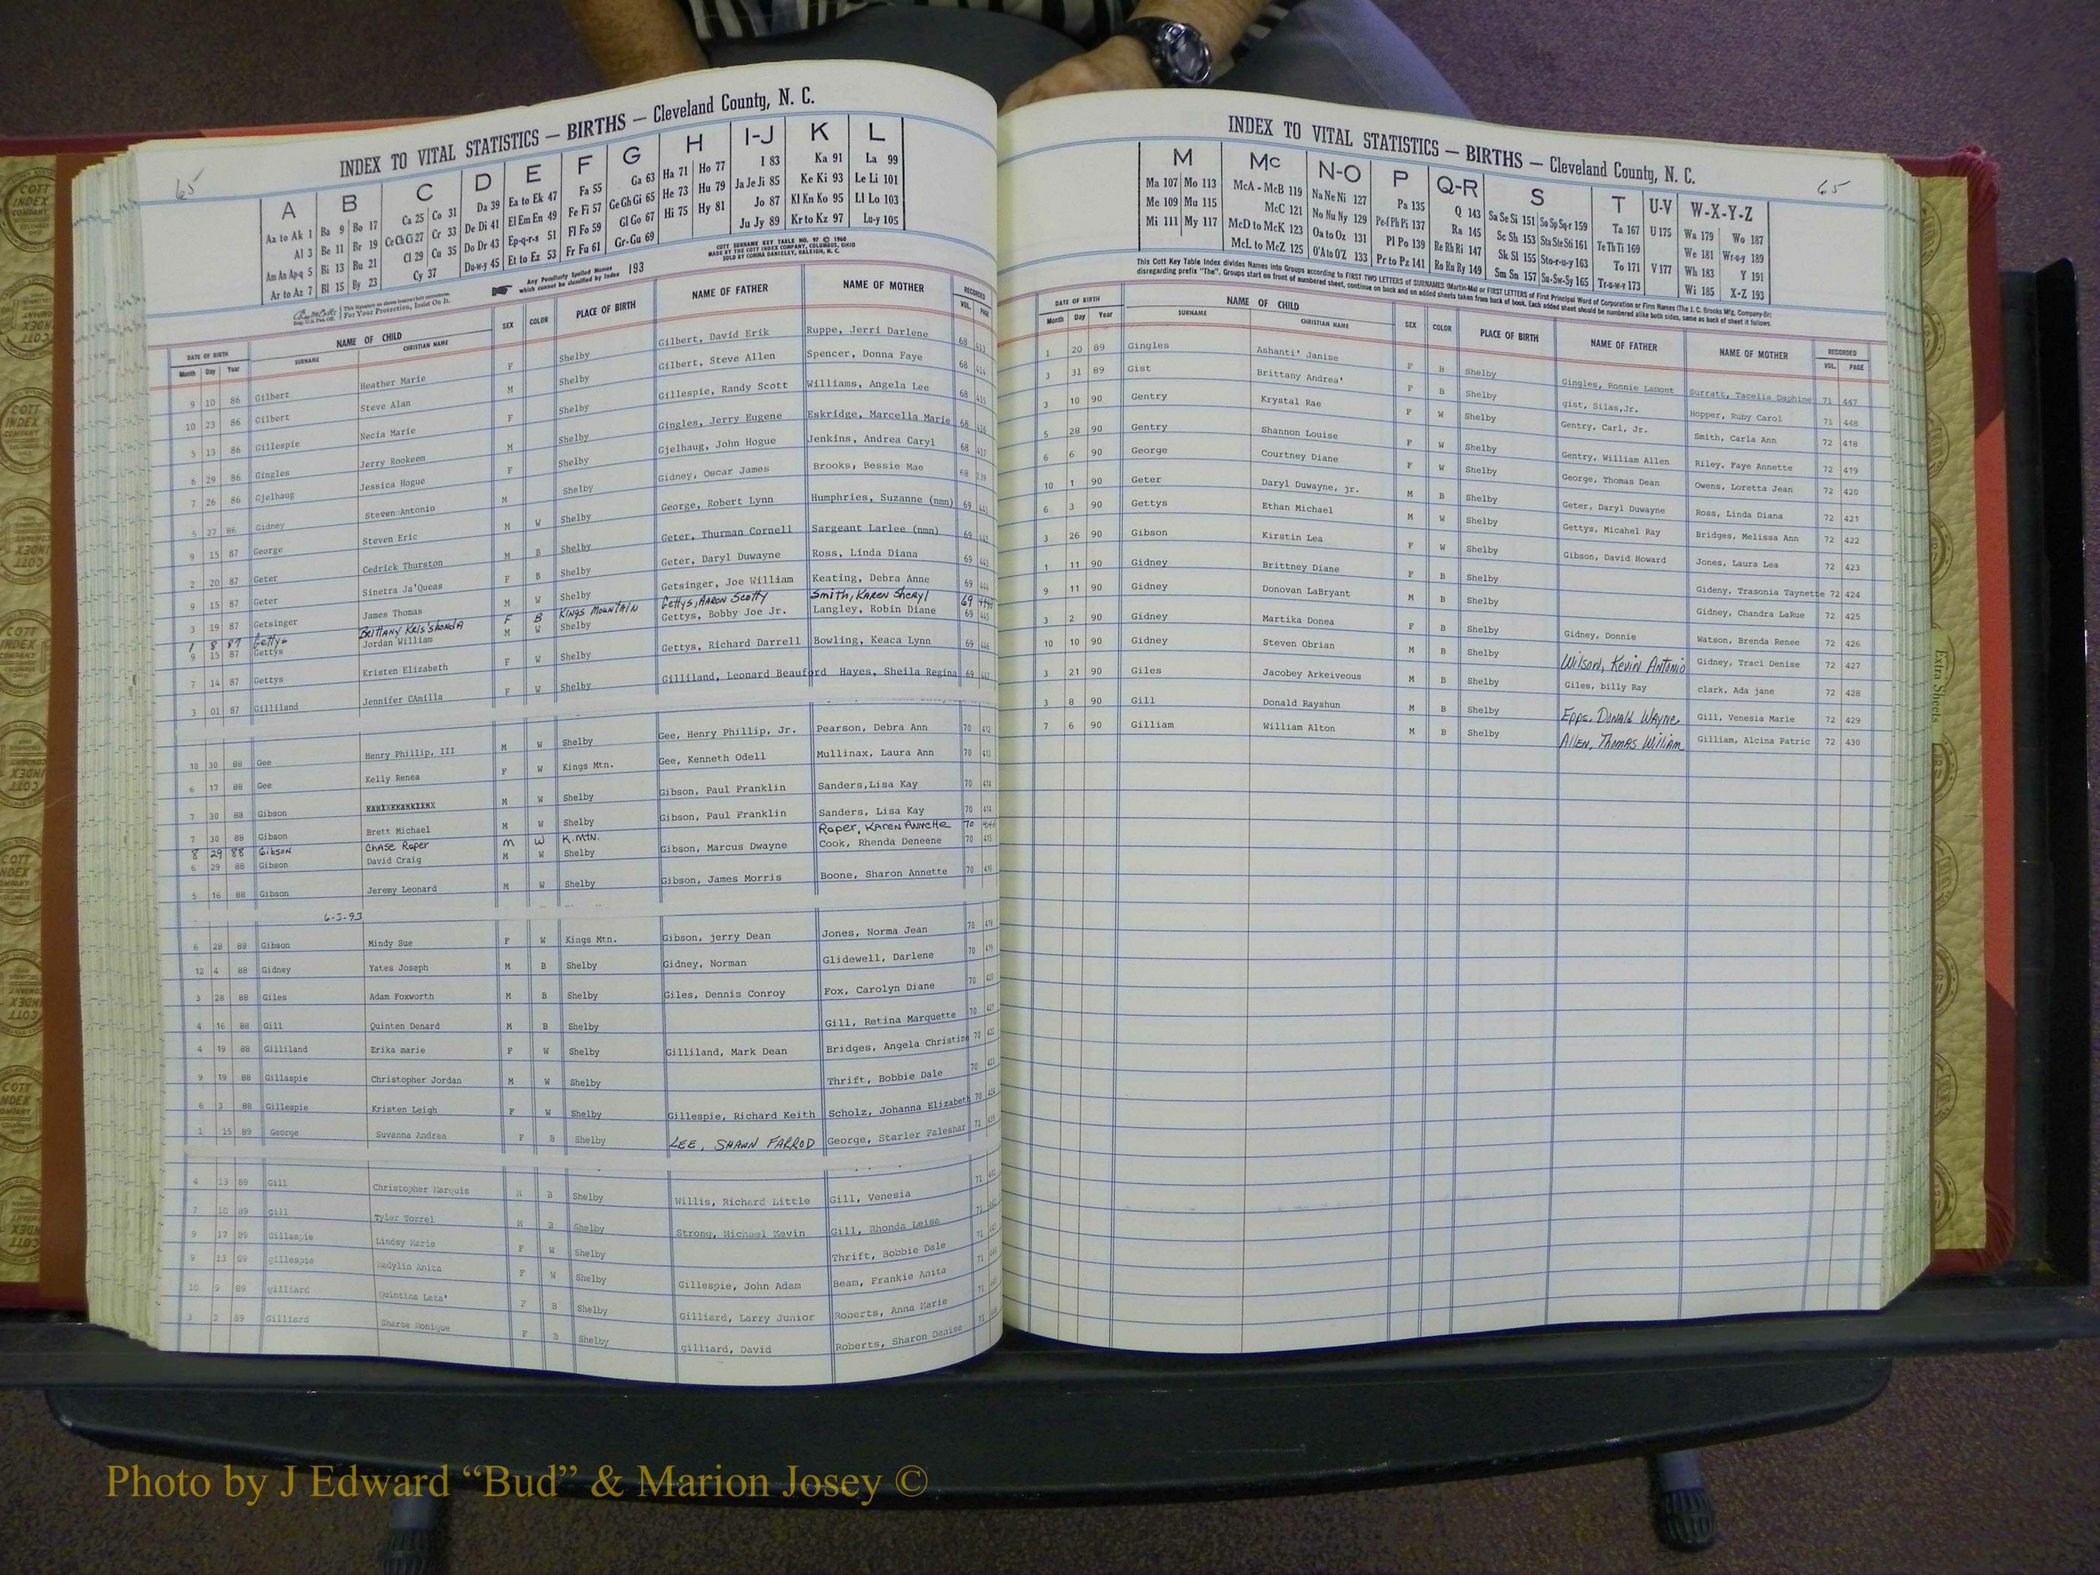 65
INDEX TO VITAL STATISTICS — BIRTHS — Cleveland County, N. C.
A B C D E F G H I-J K L
Aa to Ak 1 Ba 9 Bo 17 Ca 25 Co 31 Da 39 Ea to Ek 47 Fa 55 Ga 63 Ha 71 Ho 77 I 83 Ka 91 La 99
Al 3 Be 11 Br 19 Ce Ch Ci 27 Cr 33 De Di 41 El Em En 49 Fe Fi 57 Ge Gh Gi 65 He 73 Hu 79 Ja Je Ji 85 Ke Ki 93 Le Li 101
Am An Ap-q 5 Bi 13 Bu 21 Cl 29 Cu 35 Do Dr 43 Ep-q-r-s 51 Fl Fo 59 Gl Go 67 Hi 75 Hy 81 Jo 87 Kl Kn Ko 95 Ll Lo 103
Ar to Az 7 Bl 15 By 23 Cy 37 Du-w-y 45 Et to Ez 53 Fr Fu 61 Gr-Gu 69 Ju Jy 89 Kr to Kz 97 Lu-y 105
COTT SURNAME KEY TABLE NO. 97 © 1960
MADE BY THE COTT INDEX COMPANY, COLUMBUS, OHIO
SOLD BY COMMA DANIELEY, RALEIGH, N. C.
For Your Protection, Insist On It.
Any Peculiarly Spelled Names which cannot be classified by Index 193
DATE OF BIRTH NAME OF CHILD SEX COLOR PLACE OF BIRTH NAME OF FATHER NAME OF MOTHER RECORDED
Month Day Year SURNAME CHRISTIAN NAME VOL. PAGE
9 10 86 Gilbert Heather Marie F Shelby Gilbert, David Erik Ruppe, Jerri Darlene 68 413
10 23 86 Gilbert Steve Alan M Shelby Gilbert, Steve Allen Spencer, Donna Faye 68 414
5 13 86 Gillespie Necia Marie F Shelby Gillespie, Randy Scott Williams, Angela Lee 68 415
6 29 86 Gingles Jerry Rookeem M Shelby Gingles, Jerry Eugene Eskridge, Marcella Marie 68 416
7 26 86 Gjelhaug Jessica Hogue F Shelby Gjelhaug, John Hogue Jenkins, Andrea Caryl 68 417
5 27 86 Gidney Steven Antonio M Shelby Gidney, Oscar James Brooks, Bessie Mae 68
9 15 87 George Steven Eric M W Shelby George, Robert Lynn Humphries, Suzanne (nmn) 69 441
2 20 87 Geter Cedrick Thurston M B Shelby Geter, Thurman Cornell Sargeant Larlee (nmn) 69 442
9 15 87 Geter Sinetra Ja'Queas F B Shelby Geter, Daryl Duwayne Ross, Linda Diana 69 443
3 19 87 Getsinger James Thomas M W Shelby Getsinger, Joe William Keating, Debra Anne 69 444
1 8 87 Gettys Brittany Kris'shonda F B Kings Mountain Gettys, Aaron Scotty Smith, Karen Sheryl 69
9 15 87 Gettys Jordan William M W Shelby Gettys, Bobby Joe Jr. Langley, Robin Diane 69 445
7 14 87 Gettys Kristen Elizabeth F W Shelby Gettys, Richard Darrell Bowling, Keaca Lynn 69 446
3 01 87 Gilliland Jennifer CAmilla F W Shelby Gilliland, Leonard Beauford Hayes, Sheila Regina 69 447
10 30 88 Gee Henry Phillip, III M W Shelby Gee, Henry Phillip, Jr. Pearson, Debra Ann 70 412
6 17 88 Gee Kelly Renea F W Kings Mtn. Gee, Kenneth Odell Mullinax, Laura Ann 70 413
7 30 88 Gibson M W Shelby Gibson, Paul Franklin Sanders,Lisa Kay 70 414
7 30 88 Gibson Brett Michael M W Shelby Gibson, Paul Franklin Sanders, Lisa Kay 70 414
8 29 88 Gibson Chase Roper M W K.Mtn. Roper, Karen Annette 70
6 29 88 Gibson David Craig M W Shelby Gibson, Marcus Dwayne Cook, Rhenda Deneene 70 415
5 16 88 Gibson Jeremy Leonard M W Shelby Gibson, James Morris Boone, Sharon Annette 70 416
6-3-93
6 28 88 Gibson Mindy Sue F W Kings Mtn. Gibson, jerry Dean Jones, Norma Jean 70
12 4 88 Gidney Yates Joseph M B Shelby Gidney, Norman Glidewell, Darlene 70 419
3 28 88 Giles Adam Foxworth M B Shelby Giles, Dennis Conroy Fox, Carolyn Diane 70 420
4 16 88 Gill Quinten Denard M B Shelby Gill, Retina Marquette 70 421
4 19 88 Gilliland Erika marie F W Shelby Gilliland, Mark Dean Bridges, Angela Christine 70 422
9 19 88 Gillaspie Christopher Jordan M W Shelby Thrift, Bobbie Dale 70 423
6 3 88 Gillespie Kristen Leigh F W Shelby Gillespie, Richard Keith Scholz, Johanna Elizabeth 70 424
1 15 89 George Suvanna Andrea F B Shelby LEE, SHAWN FARROD George, Starler Faleshar 71
4 13 89 Gill Christopher Marquis M B Shelby Willis, Richard Little Gill, Venesia 71
7 10 89 Gill Tyler Torrel M Shelby Strong, Michael Kevin Gill, Rhonda Leisa 71
9 17 89 Gillaspie Lindsy Marie F W Shelby Thrift, Bobbie Dale 71
5 13 89 gillespie Madylin Anita F W Shelby Gillespie, John Adam Beam, Frankie Anita 71
10 9 89 gilliard Quintina Lata' F B Shelby Gilliard, Larry Junior Roberts, Anna Marie 71
3 3 89 Gilliard Sharee Monique F B Shelby gilliard, David Roberts, Sharon Denise 71
INDEX TO VITAL STATISTICS — BIRTHS — Cleveland County, N. C.
65
M Mc N-O P Q-R S T U-V W-X-Y-Z
Ma 107 Mo 113 McA - McB 119 Na Ne Ni 127 Pa 135 Q 143 Sa Se Si 151 So Sp Sq-r 159 Ta 167 U 175 Wa 179 Wo 187
Me 109 Mu 115 McC 121 No Nu Ny 129 Pe-f Ph Pi 137 Ra 145 Sc Sh 153 Sta Ste Sti 161 Te Th Ti 169 We 181 Wr-u-y 189
Mi 111 My 117 McD to McK 123 Oa to Oz 131 Pl Po 139 Re Rh Ri 147 Sk Sl 155 Sto-r-u-y 163 To 171 V 177 Wh 183 Y 191
McL to McZ 125 O'A to O'Z 133 Pr to Pz 141 Ro Ru Ry 149 Sm Sn 157 Su-Sw-Sy 165 Tr-u-w-y 173 Wi 185 X-Z 193
This Cott Key Table Index divides Names into Groups according to FIRST TWO LETTERS of SURNAMES (Martin-Ma) or FIRST LETTERS of First Principal Word of Corporation or Firm Names (The J. C. Brooks Mfg. Company-Br)
disregarding prefix "The". Groups start on front of numbered sheet, continue on back and on added sheets taken from back of book. Each added sheet should be numbered alike both sides, same as back of sheet it follows.
DATE OF BIRTH NAME OF CHILD SEX COLOR PLACE OF BIRTH NAME OF FATHER NAME OF MOTHER RECORDED
Month Day Year SURNAME CHRISTIAN NAME VOL. PAGE
1 20 89 Gingles Ashanti' Janise F B Shelby Gingles, Ronnie Lamont Surratt, Tacelia Daphine 71 447
3 31 89 Gist Brittany Andrea' F B Shelby gist, Silas,Jr. Hopper, Ruby Carol 71 448
3 10 90 Gentry Krystal Rae F W Shelby Gentry, Carl, Jr. Smith, Carla Ann 72 418
5 28 90 Gentry Shannon Louise F W Shelby Gentry, William Allen Riley, Faye Annette 72 419
6 6 90 George Courtney Diane F W Shelby George, Thomas Dean Owens, Loretta Jean 72 420
10 1 90 Geter Daryl Duwayne, jr. M B Shelby Geter, Daryl Duwayne Ross, Linda Diana 72 421
6 3 90 Gettys Ethan Michael M W Shelby Gettys, Micahel Ray Bridges, Melissa Ann 72 422
3 26 90 Gibson Kirstin Lea F W Shelby Gibson, David Howard Jones, Laura Lea 72 423
1 11 90 Gidney Brittney Diane F B Shelby Gideny, Trasonia Taynette 72 424
9 11 90 Gidney Donovan LaBryant M B Shelby Gidney, Chandra LaRue 72 425
3 2 90 Gidney Martika Donea F B Shelby Gidney, Donnie Watson, Brenda Renee 72 426
10 10 90 Gidney Steven Obrian M B Shelby Wilson, Kevin Antonio Gidney, Traci Denise 72 427
3 21 90 Giles Jacobey Arkeiveous M B Shelby Giles, billy Ray clark, Ada jane 72 428
3 8 90 Gill Donald Rayshun M B Shelby Epps, Donald Wayne Gill, Venesia Marie 72 429
7 6 90 Gilliam William Alton M B Shelby Allen, Thomas William Gilliam, Alcina Patric 72 430
Extra Sheets
COTT INDEX COMPANY
Photo by J Edward “Bud” & Marion Josey ©